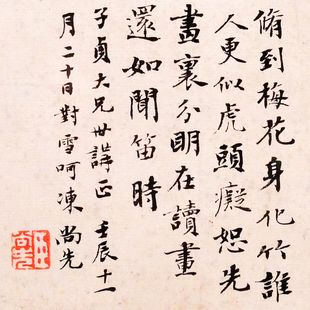 脩到梅花身化竹誰
人更似虎頭癡恕先
畫裏分明在讀畫
還如聞笛時
子貞大兄世講正 壬辰十一
月二十日對雪呵凍尚先
臣尚先